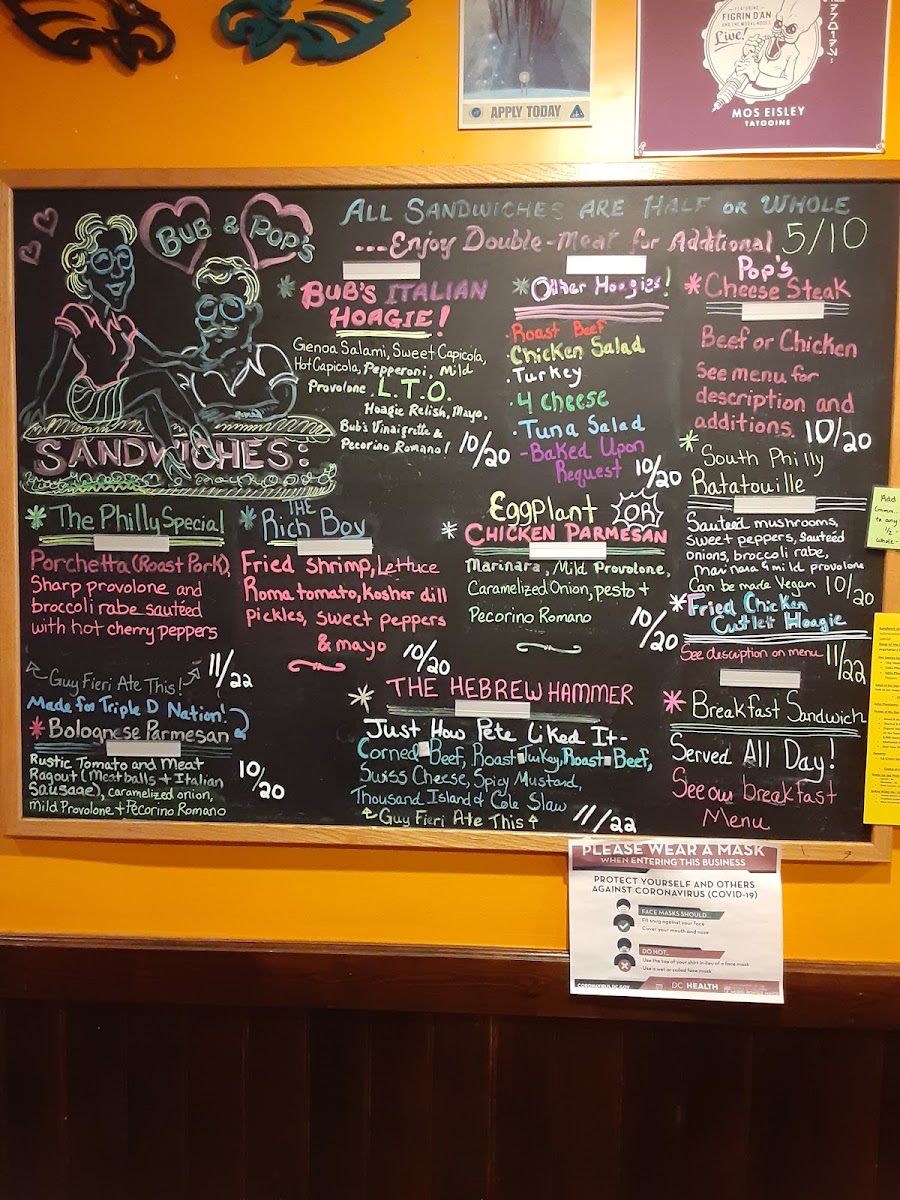 APPLY TODAY
FEATURING
FIGRIN D'AN
AND THE MODAL NODES
Live!
MOS EISLEY
TATOOINE
BUB & POP'S
SANDWICHES:
ALL SANDWICHES ARE HALF OR WHOLE
...Enjoy Double-Meat for Additional 5/10
* BUB'S ITALIAN
HOAGIE!
Genoa Salami, Sweet Capicola,
Hot Capicola, Pepperoni, Mild
Provolone. L.T.O.
Hoagie Relish, Mayo,
Bub's Vinaigrette &
Pecorino Romano!
10/20
* Other Hoagies!
. Roast Beef
. Chicken Salad
. Turkey
. 4 Cheese
. Tuna Salad
- Baked Upon
Request
10/20
Pop's
* Cheese Steak
Beef or Chicken
See menu for
description and
additions.
10/20
* South Philly
Ratatouille
Sauteed mushrooms,
sweet peppers, sauteed
onions, broccoli rabe,
marinara & mild provolone
Can be made Vegan
10/20
* The Philly Special
Porchetta (Roast Pork),
Sharp provolone and
broccoli rabe sautéed
with hot cherry peppers
11/22
Guy Fieri Ate This!
* THE
Rich Boy
Fried shrimp, Lettuce
Roma tomato, Kosher dill
pickles, sweet peppers
& mayo
10/20
Eggplant OR
* CHICKEN PARMESAN
Marinara, Mild Provolone,
Caramelized Onion, pesto +
Pecorino Romano
10/20
* Fried Chicken
Cutlet Hoagie
See description on menu
11/22
Made for Triple D Nation!
* Bolognese Parmesan
Rustic Tomato and Meat
Ragout (Meatballs + Italian
Sausage), caramelized onion,
Mild Provolone + Pecorino Romano
10/20
* THE HEBREW HAMMER
Just How Pete Liked It-
Corned Beef, Roast Turkey, Roast Beef,
Swiss Cheese, Spicy Mustard,
Thousand Island & Cole Slaw
Guy Fieri Ate This
11/22
* Breakfast Sandwich
Served All Day!
See our breakfast
Menu
Add
to any
PLEASE WEAR A MASK
WHEN ENTERING THIS BUSINESS
PROTECT YOURSELF AND OTHERS
AGAINST CORONAVIRUS (COVID-19)
FACE MASKS SHOULD...
Fit snug against your face
Cover your mouth and nose
DO NOT...
Use the top of your shirt in lieu of a face mask
Use a wet or soiled face mask
CORONAVIRUS.DC.GOV
DC HEALTH